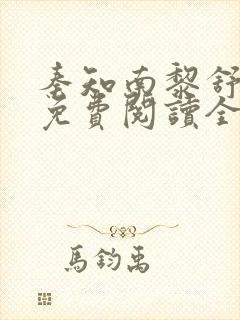 秦知南黎舒
免費閱讀全
馬鈞禹